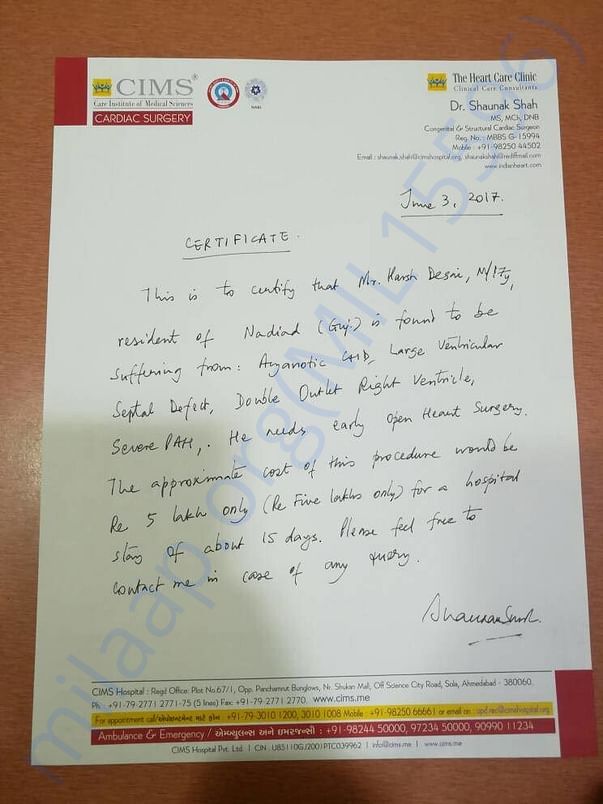 CIMS®
Care Institute of Medical Sciences
CARDIAC SURGERY
NABL
The Heart Care Clinic
Clinical Care Consultants
Dr. Shaunak Shah
MS, MCh, DNB
Congenital & Structural Cardiac Surgeon
Reg. No.: MBBS G-15994
Mobile : +91-98250 44502
Email : shaunak.shah@cimshospital.org, shaunakshah@rediffmail.com
www.indianheart.com
June 3, 2017.
CERTIFICATE.
This is to certify that Mr. Harsh Desai, M/17y,
resident of Nadiad (Guj.) is found to be
suffering from: Acyanotic CHD, Large Ventricular
Septal Defect, Double Outlet Right Ventricle,
Severe PAH,. He needs early Open Heart Surgery.
The approximate cost of this procedure would be
Rs 5 lakh only (Rs Five lakhs only) for a hospital
stay of about 15 days. Please feel free to
contact me in case of any query.
CIMS Hospital : Regd Office: Plot No.67/1, Opp. Panchamrut Bunglows, Nr. Shukan Mall, Off Science City Road, Sola, Ahmedabad - 380060.
Ph. : +91-79-2771 2771-75 (5 lines) Fax: +91-79-2771 2770. www.cims.me
For appointment call/એપોઇન્ટમેન્ટ માટે ફોન : +91-79-3010 1200, 3010 1008 Mobile : +91-98250 66661 or email on : opd.rec@cimshospital.org
Ambulance & Emergency / એમ્બ્યુલન્સ અને ઇમરજન્સી : +91-98244 50000, 97234 50000, 90990 11234
CIMS Hospital Pvt. Ltd. | CIN : U85110GJ2001PTC039962 | info@cims.me | www.cims.me
milaap.org(MIL15596)